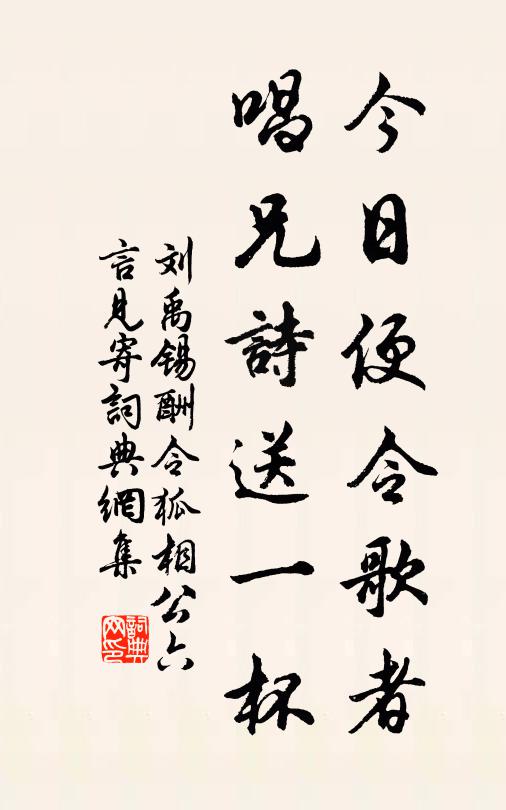 今日便令歌者
唱兄詩送一杯
刘禹锡酬令狐相公六
言見寄詞典網集
詞典
网印